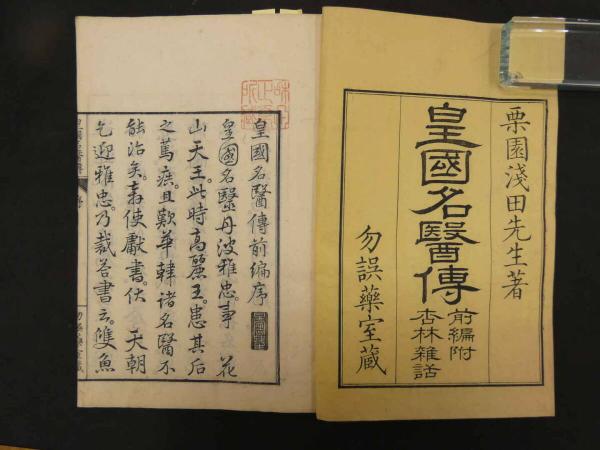 栗園淺田先生著
皇國名醫傳
前編附
杏林雜話
勿誤藥室藏
皇國名醫傳前編序
皇國名醫丹波雅忠事 花
山天王此時高麗王患其后
之篤疾且歎華韓諸名醫不
能治矣
使獻書伏 天朝
乞迎雅忠乃裁答書云雙魚